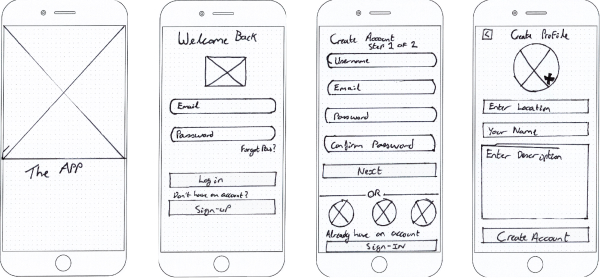 The APP
Welcome Back
Email
Password
Forgot Pass?
Log in
Don't have an account?
Sign-up
Create Account
Step 1 of 2
Username
Email
Password
Confirm Password
Next
OR
Already have an account
Sign-IN
Create Profile
Enter Location
Your Name
Enter Description
Create Account